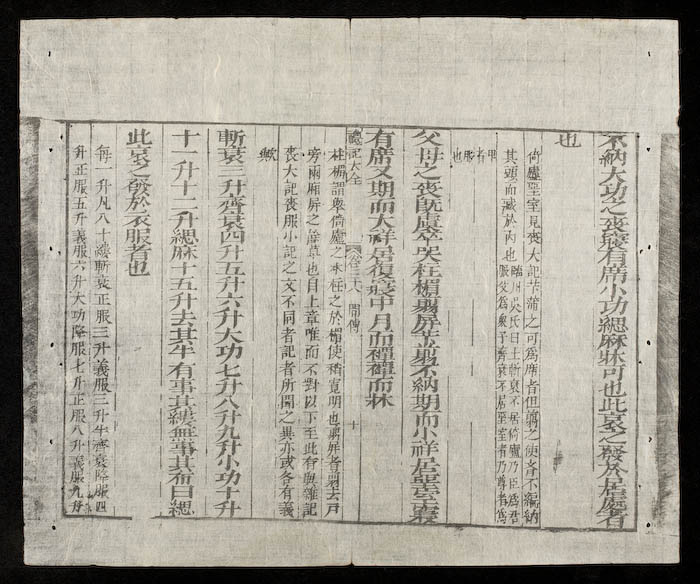 不納大功之喪寢有席小功緦麻牀可也此哀之發於居處者
也
倚廬堊室見喪大記苄蒲之可為席者但翦之使齊不編納
其頭而藏於內也臨川吳氏曰士斬衰不居倚廬乃臣為君
服父為衆子齊衰不居堊室者乃尊者為
卑者服也
父母之喪既虞卒哭柱楣翦屏苄翦不納期而小祥居堊室寢
有席又期而大祥居復寢中月而禫禫而牀
禮記大全 卷三十八 間傳 十
柱楣謂舉倚廬之木柱之於楣使稍寬明也翦屏者翦去戶
旁兩廂屏之餘草也自上章唯而不對以下至此有與雜記
喪大記喪服小記之文不同者記者所聞之異亦或各有義
歟
斬衰三升齊衰四升五升六升大功七升八升九升小功十升
十一升十二升緦麻十五升去其半有事其縷無事其布曰緦
此哀之發於衣服者也
每一升凡八十縷斬衰正服三升義服三升半齊衰降服四
升正服五升義服六升大功降服七升正服八升義服九升